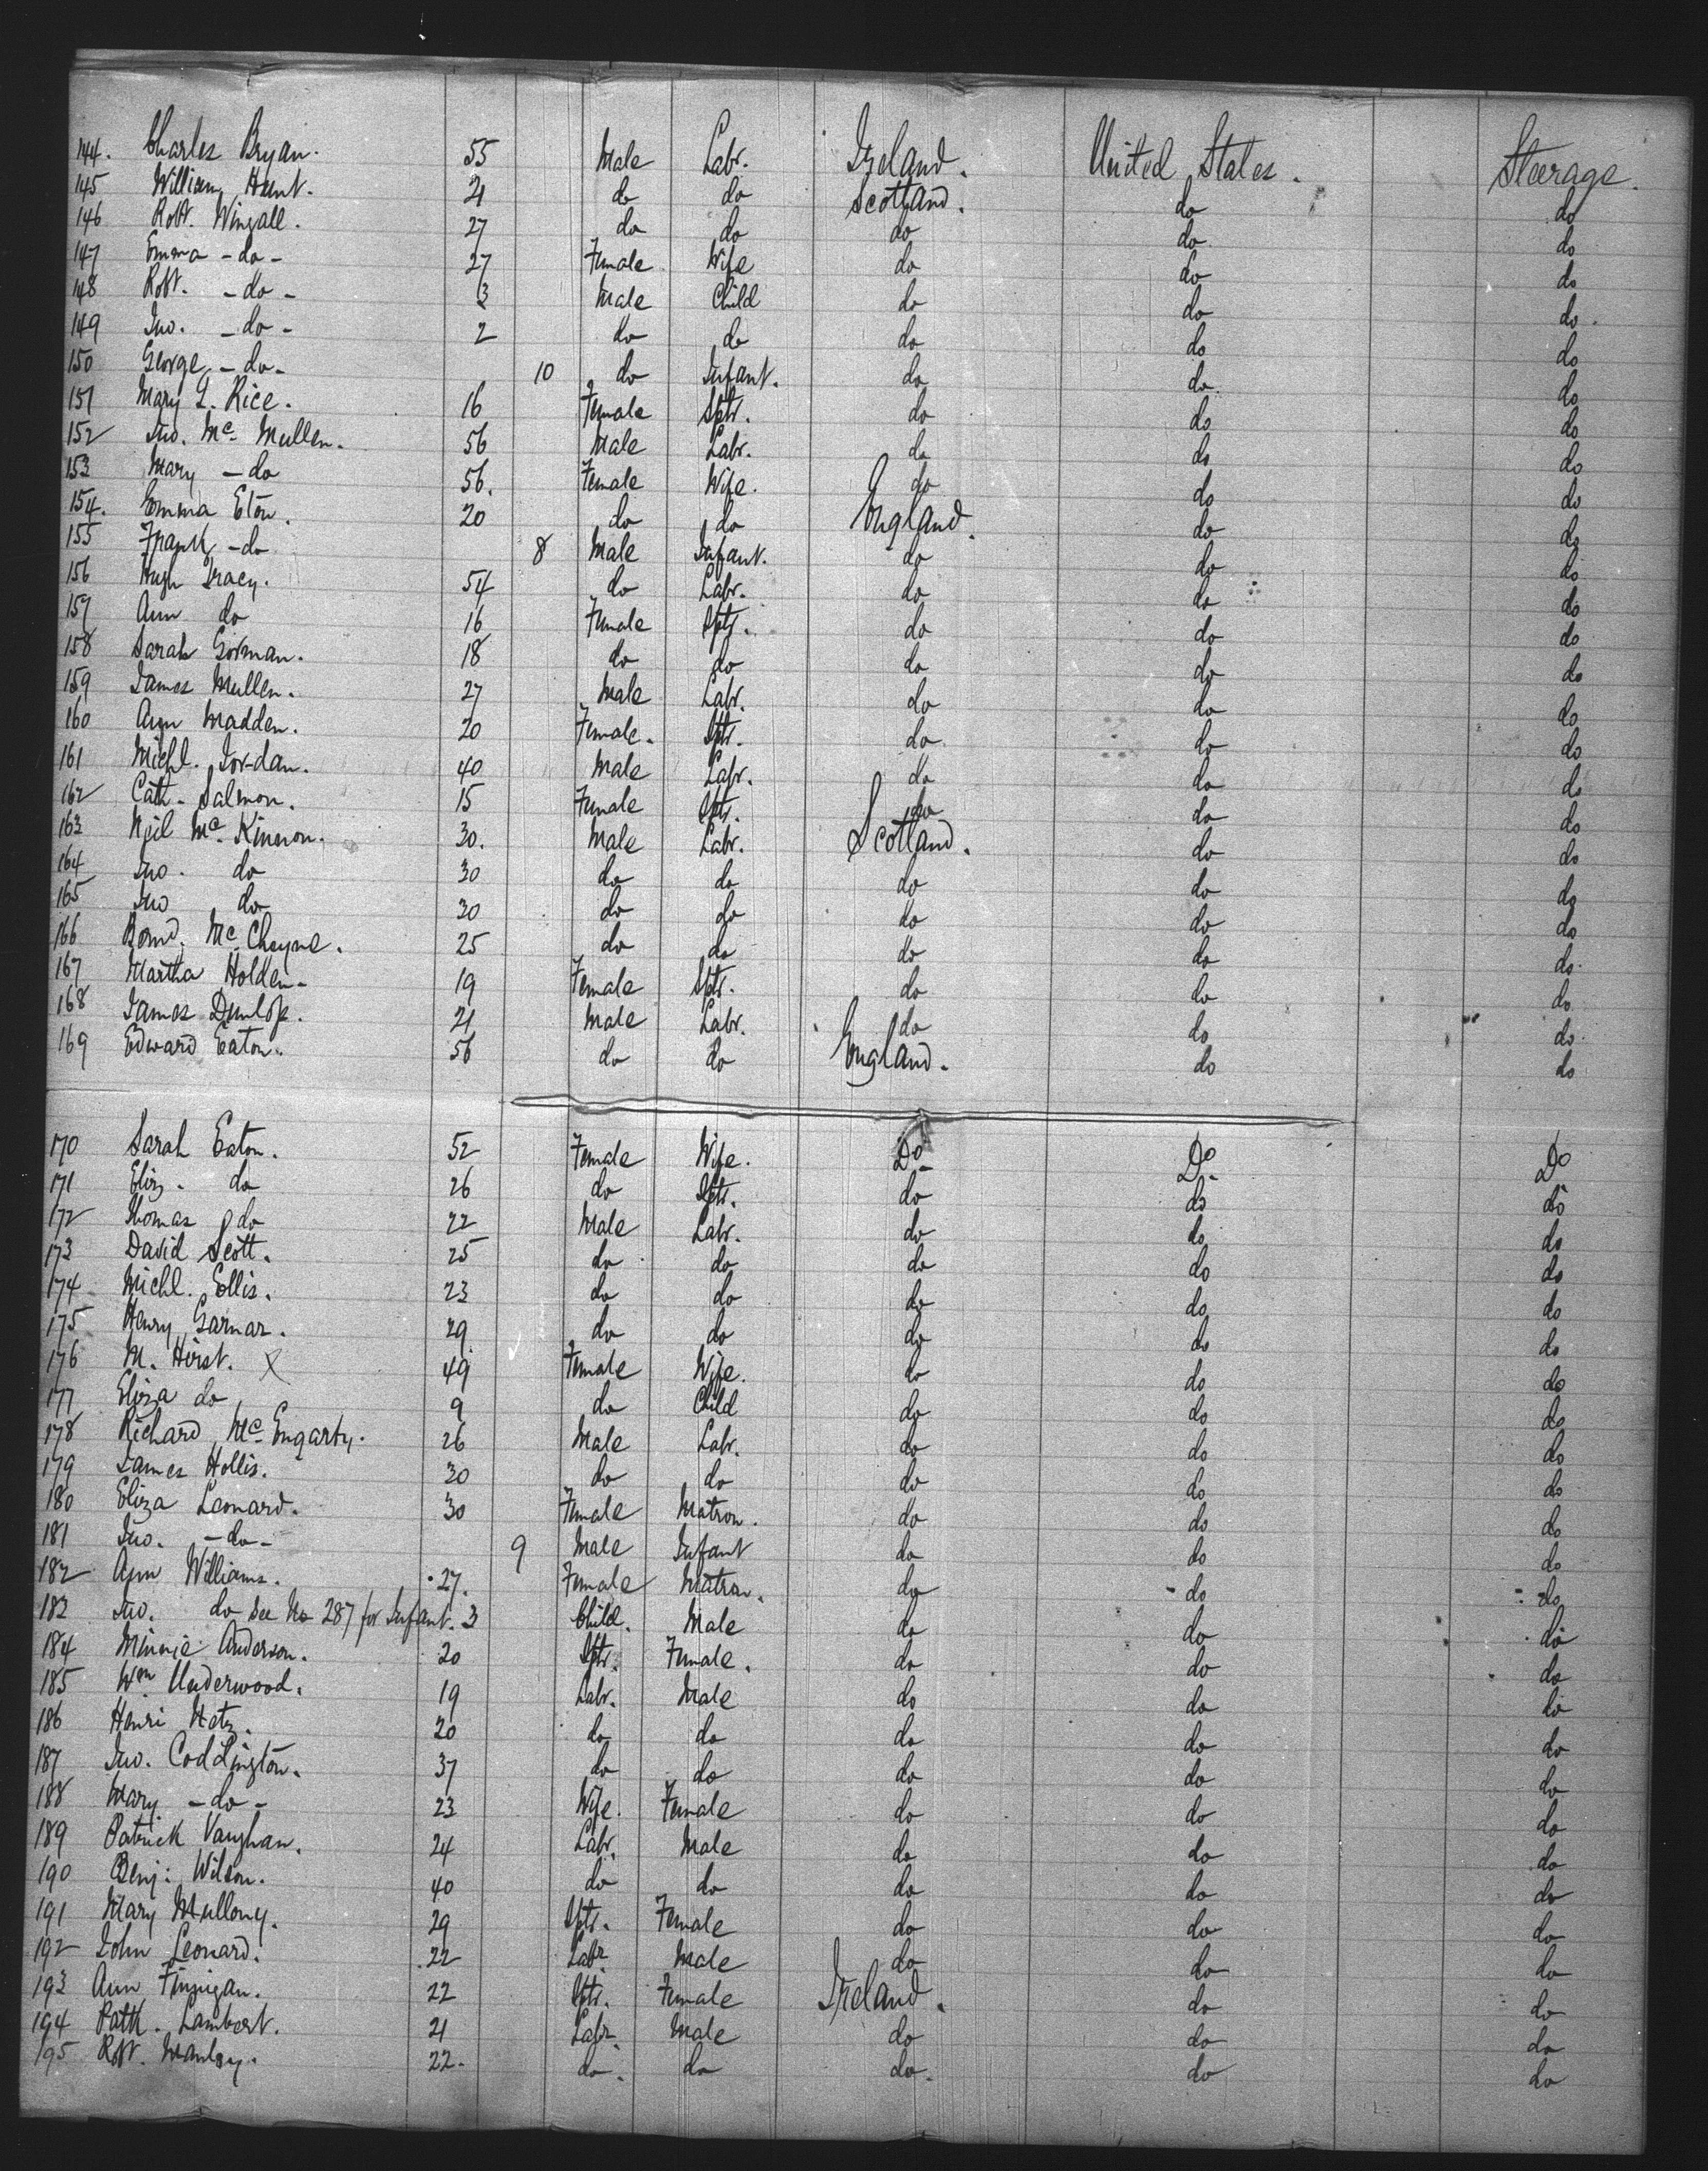 144. Charles Bryan. 55 Male Labr. Ireland. United States. Steerage.
145 William Hunt. 21 do do Scotland. do do
146 Robt. Wingall. 27 do do do do do
147 Emma -do- 27 Female Wife do do do
148 Robt. -do- 3 Male Child do do do
149 Jno. -do- 2 do do do do do
150 George -do- 10 do Infant. do do do
151 Mary L. Rice. 16 Female Sptr. do do do
152 Jno. Mc Mullen. 56 Male Labr. do do do
153 Mary -do 56. Female Wife. do do do
154. Emma Eton. 20 do do England. do do
155 Frank -do 8 Male Infant. do do do
156 Hugh Tracy. 54 do Labr. do do do
157 Ann do 16 Female Sptr. do do do
158 Sarah Gorman. 18 do do do do do
159 James Mullen. 27 Male Labr. do do do
160 Ann Madden. 20 Female. Sptr. do do do
161 Michl. Jordan. 40 Male Labr. do do do
162 Cath. Salmon. 15 Female Sptr. do do do
163 Neil Mc Kinnon. 30. Male Labr. Scotland. do do
164 Jno. do 30 do do do do do
165 Jno do 30 do do do do do
166 Mc Cheyne. 25 do do do do do
167 Martha Holden. 19 Female Sptr. do do do
168 James Dunlop. 21 Male Labr. do do do
169 Edward Eaton. 56 do do England. do do
170 Sarah Eaton. 52 Female Wife. Do Do Do
171 Eliz. do 26 do Sptr. do do do
172 Thomas do 22 Male Labr. do do do
173 David Scott. 25 do do do do do
174 Michl. Ellis. 23 do do do do do
175 Henry Garnar. 29 do do do do do
176 M. Hirst. X 49 Female Wife. do do do
177 Eliza do 9 do Child do do do
178 Richard Mc Engarty. 26 Male Labr. do do do
179 James Hollis. 30 do do do do do
180 Eliza Leonard. 30 Female Matron. do do do
181 Jno. -do- 9 Male Infant do do do
182 Ann Williams. 27. Female Matron. do do do
183 Jno. do See No 287 for Infant. 3 Child. Male do do do
184 Minnie Anderson. 20 Sptr. Female. do do do
185 Wm Underwood. 19 Labr. Male do do do
186 Henri 20 do do do do do
187 Jno. Coddington. 37 do do do do do
188 Mary -do- 23 Wife. Female do do do
189 Patrick Vaughan. 24 Labr. Male do do do
190 Benj: Wilson. 40 do do do do do
191 Mary Mullony. 29 Sptr. Female do do do
192 John Leonard. 22 Labr Male do do do
193 Ann Finnigan. 22 Sptr. Female Ireland. do do
194 Patk. Lambert. 21 Labr. Male do do do
195 Robt. Manley. 22. do. do do. do do